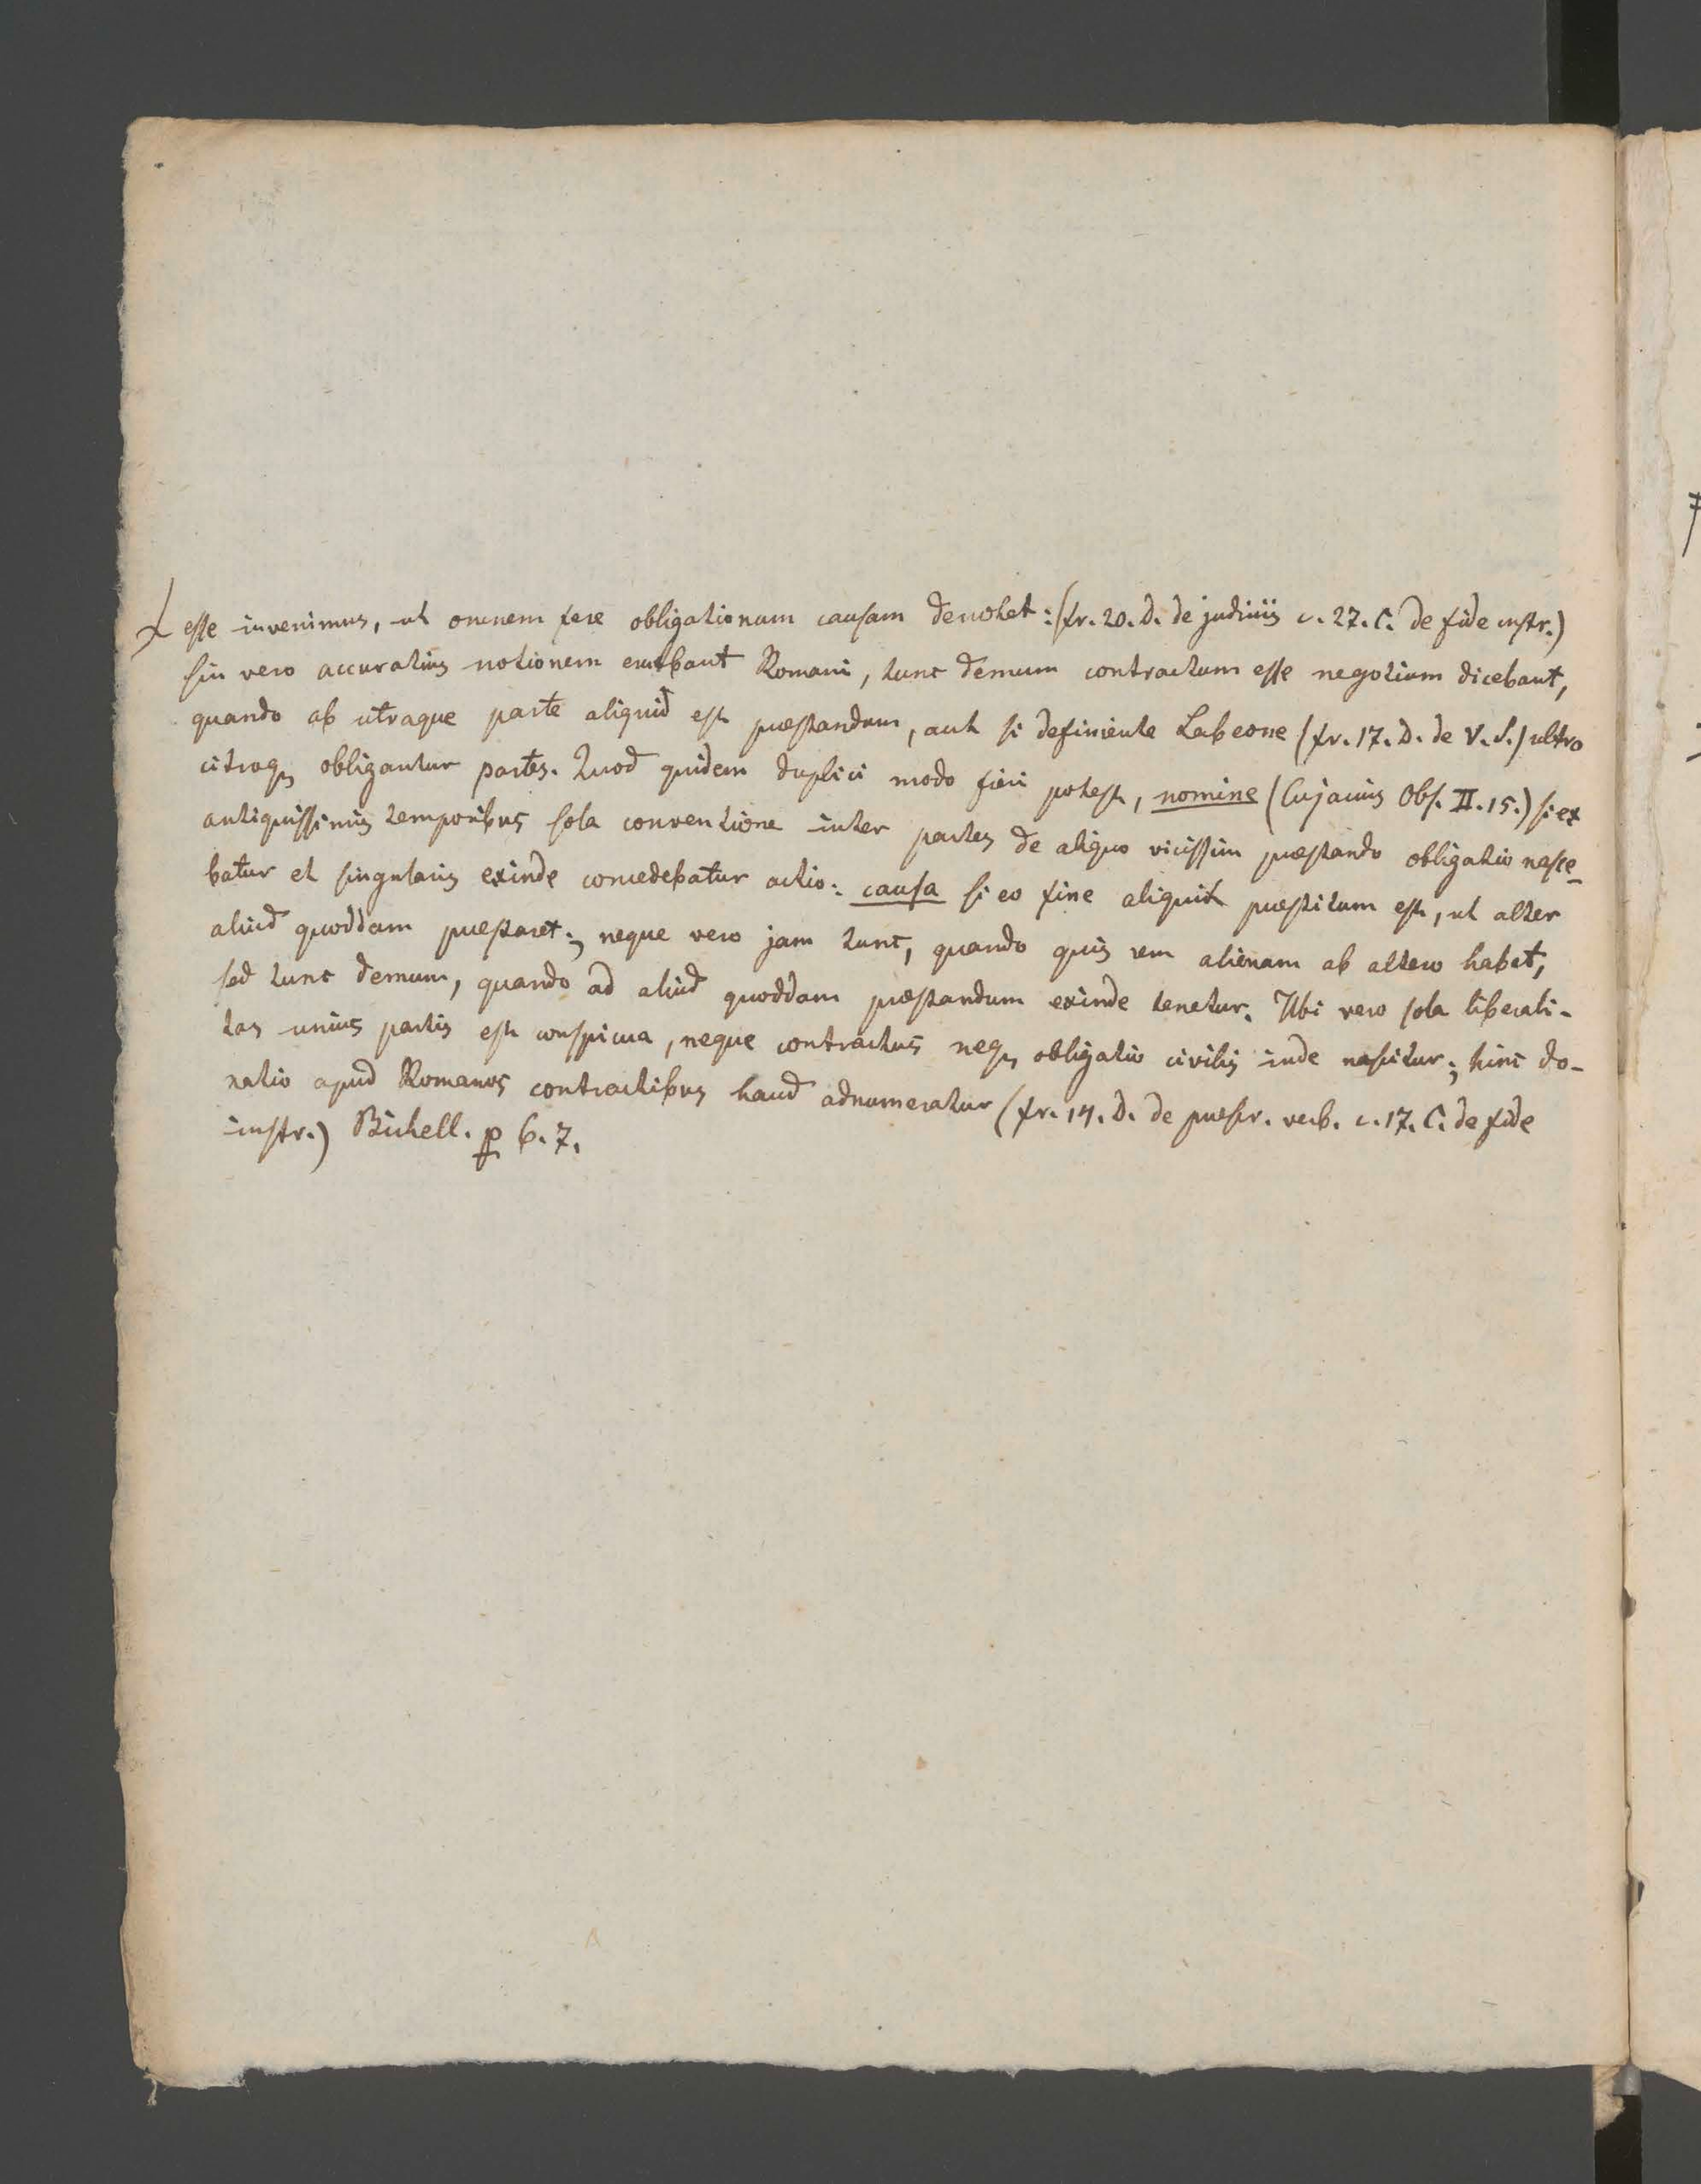 esse invenimus, ut omnem fere obligationum causam denotet: (fr. 20. D. de judiciis c. 27. C. de fide instr.)
sin vero accuratius notionem Romani, tunc demum contractum esse negotium dicebant,
quando ab utraque parte aliquid est præstandum, aut si definiente Labeone (fr. 17. D. de V. S.) ultro
citroq obligantur partes. Quod quidem duplici modo fieri potest, nomine (Cujacius Obs. II. 15.) si ex
antiquissimis temporibus sola conventione inter partes de aliquo vicissim præstando obligatio nasce-
batur et singularis exinde concedebatur actio: causa si eo fine aliquid præstitum est, ut alter
aliud quoddam præstaret; neque vero jam tunc, quando quis rem alienam ab altero habet,
sed tunc demum, quando ad aliud quoddam præstandum exinde tenetur. Ubi vero sola liberali-
tas unius partis est conspicua, neque contractus neq obligatio civilis inde nascitur; hinc do-
natio apud Romanos contractibus haud adnumeratur (fr. 14. D. de præscr. verb. c. 17. C. de fide
instr.) Bickell. p 6. 7.